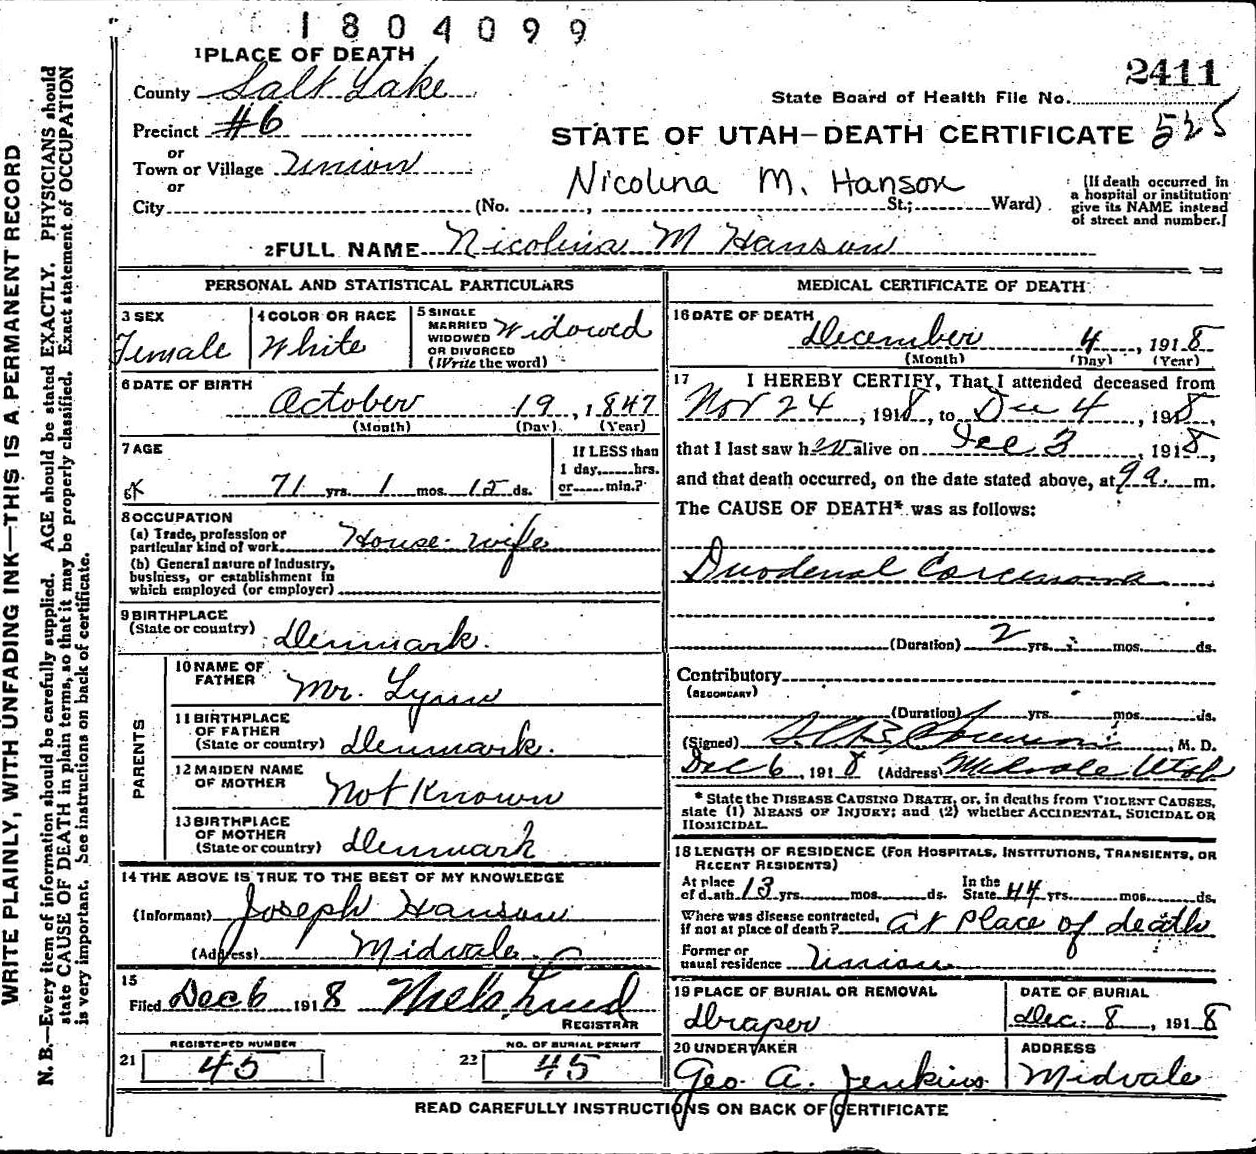 1804099
1 PLACE OF DEATH
County Salt Lake
2411
State Board of Health File No.
Precinct #6
STATE OF UTAH—DEATH CERTIFICATE 525
or
Town or Village Union
or
Nicolina M. Hanson
City (No. , St.; Ward)
[If death occurred in a hospital or institution give its NAME instead of street and number.]
2 FULL NAME Nicolina M Hanson
PERSONAL AND STATISTICAL PARTICULARS
3 SEX Female
4 COLOR OR RACE White
5 SINGLE MARRIED WIDOWED OR DIVORCED (Write the word) Widowed
6 DATE OF BIRTH
October 19, 1847
(Month) (Day) (Year)
7 AGE
71 yrs. 1 mos. 15 ds.
If LESS than 1 day, hrs. or min.?
8 OCCUPATION
(a) Trade, profession or particular kind of work House-wife
(b) General nature of Industry, business, or establishment in which employed (or employer)
9 BIRTHPLACE
(State or country) Denmark.
PARENTS
10 NAME OF FATHER Mr. Lynn
11 BIRTHPLACE OF FATHER (State or country) Denmark.
12 MAIDEN NAME OF MOTHER Not Known
13 BIRTHPLACE OF MOTHER (State or country) Denmark
14 THE ABOVE IS TRUE TO THE BEST OF MY KNOWLEDGE
(Informant) Joseph Hanson
(Address) Midvale.
15
Filed Dec 6 1918 Niels Lind
REGISTRAR
REGISTERED NUMBER
21 45
NO. OF BURIAL PERMIT
22 45
MEDICAL CERTIFICATE OF DEATH
16 DATE OF DEATH
December 4, 1918
(Month) (Day) (Year)
17 I HEREBY CERTIFY, That I attended deceased from
Nov 24, 1918, to Dec 4, 1918,
that I last saw her alive on Dec 3, 1918,
and that death occurred, on the date stated above, at 9 a. m.
The CAUSE OF DEATH* was as follows:
Duodenal Carcinoma
(Duration) 2 yrs. mos. ds.
Contributory
(SECONDARY)
(Duration) yrs. mos. ds.
(Signed) , M. D.
Dec 6, 1918 (Address) Midvale Utah
* State the DISEASE CAUSING DEATH, or, in deaths from VIOLENT CAUSES,
state (1) MEANS OF INJURY; and (2) whether ACCIDENTAL, SUICIDAL OR
HOMICIDAL.
18 LENGTH OF RESIDENCE (FOR HOSPITALS, INSTITUTIONS, TRANSIENTS, OR
RECENT RESIDENTS)
At place of death 13 yrs. mos. ds. In the State 44 yrs. mos. ds.
Where was disease contracted, if not at place of death? at place of death
Former or usual residence Union
19 PLACE OF BURIAL OR REMOVAL
Draper
DATE OF BURIAL
Dec. 8, 1918
20 UNDERTAKER
Geo. A. Jenkins
ADDRESS
Midvale
READ CAREFULLY INSTRUCTIONS ON BACK OF CERTIFICATE
WRITE PLAINLY, WITH UNFADING INK—THIS IS A PERMANENT RECORD
N. B.—Every item of information should be carefully supplied. AGE should be stated EXACTLY. PHYSICIANS should
state CAUSE OF DEATH in plain terms, so that it may be properly classified. Exact statement of OCCUPATION
is very important. See instructions on back of certificate.